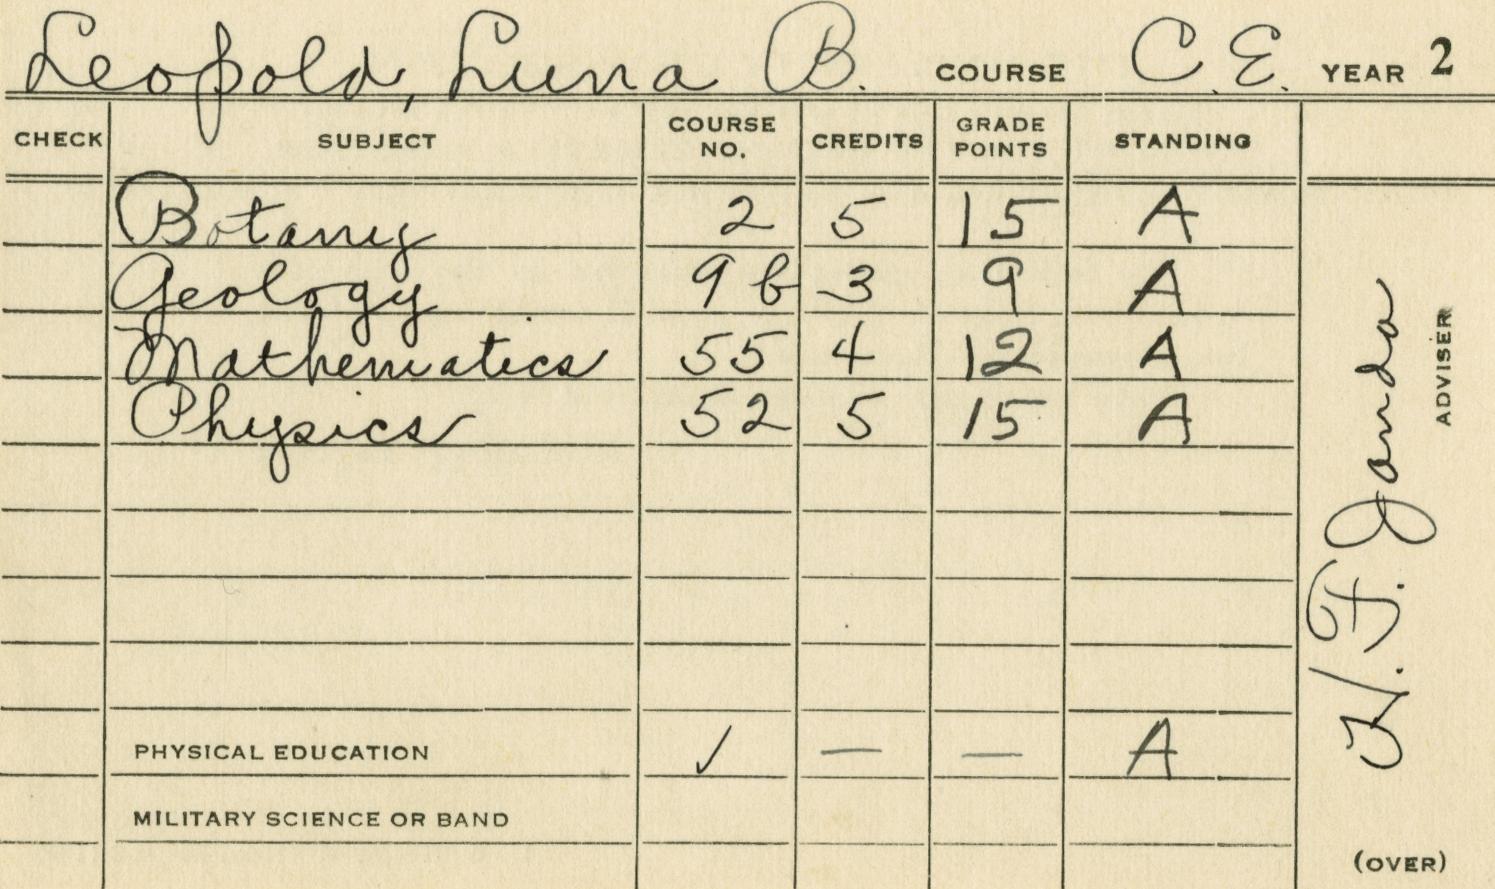 Leopold, Luna B. COURSE C.E. YEAR 2
CHECK SUBJECT COURSE NO. CREDITS GRADE POINTS STANDING
Botany 2 5 15 A
Geology 9b 3 9 A
Mathematics 55 4 12 A
Physics 52 5 15 A
PHYSICAL EDUCATION ✓ — — A
MILITARY SCIENCE OR BAND
H. F. Janda
ADVISER
(OVER)